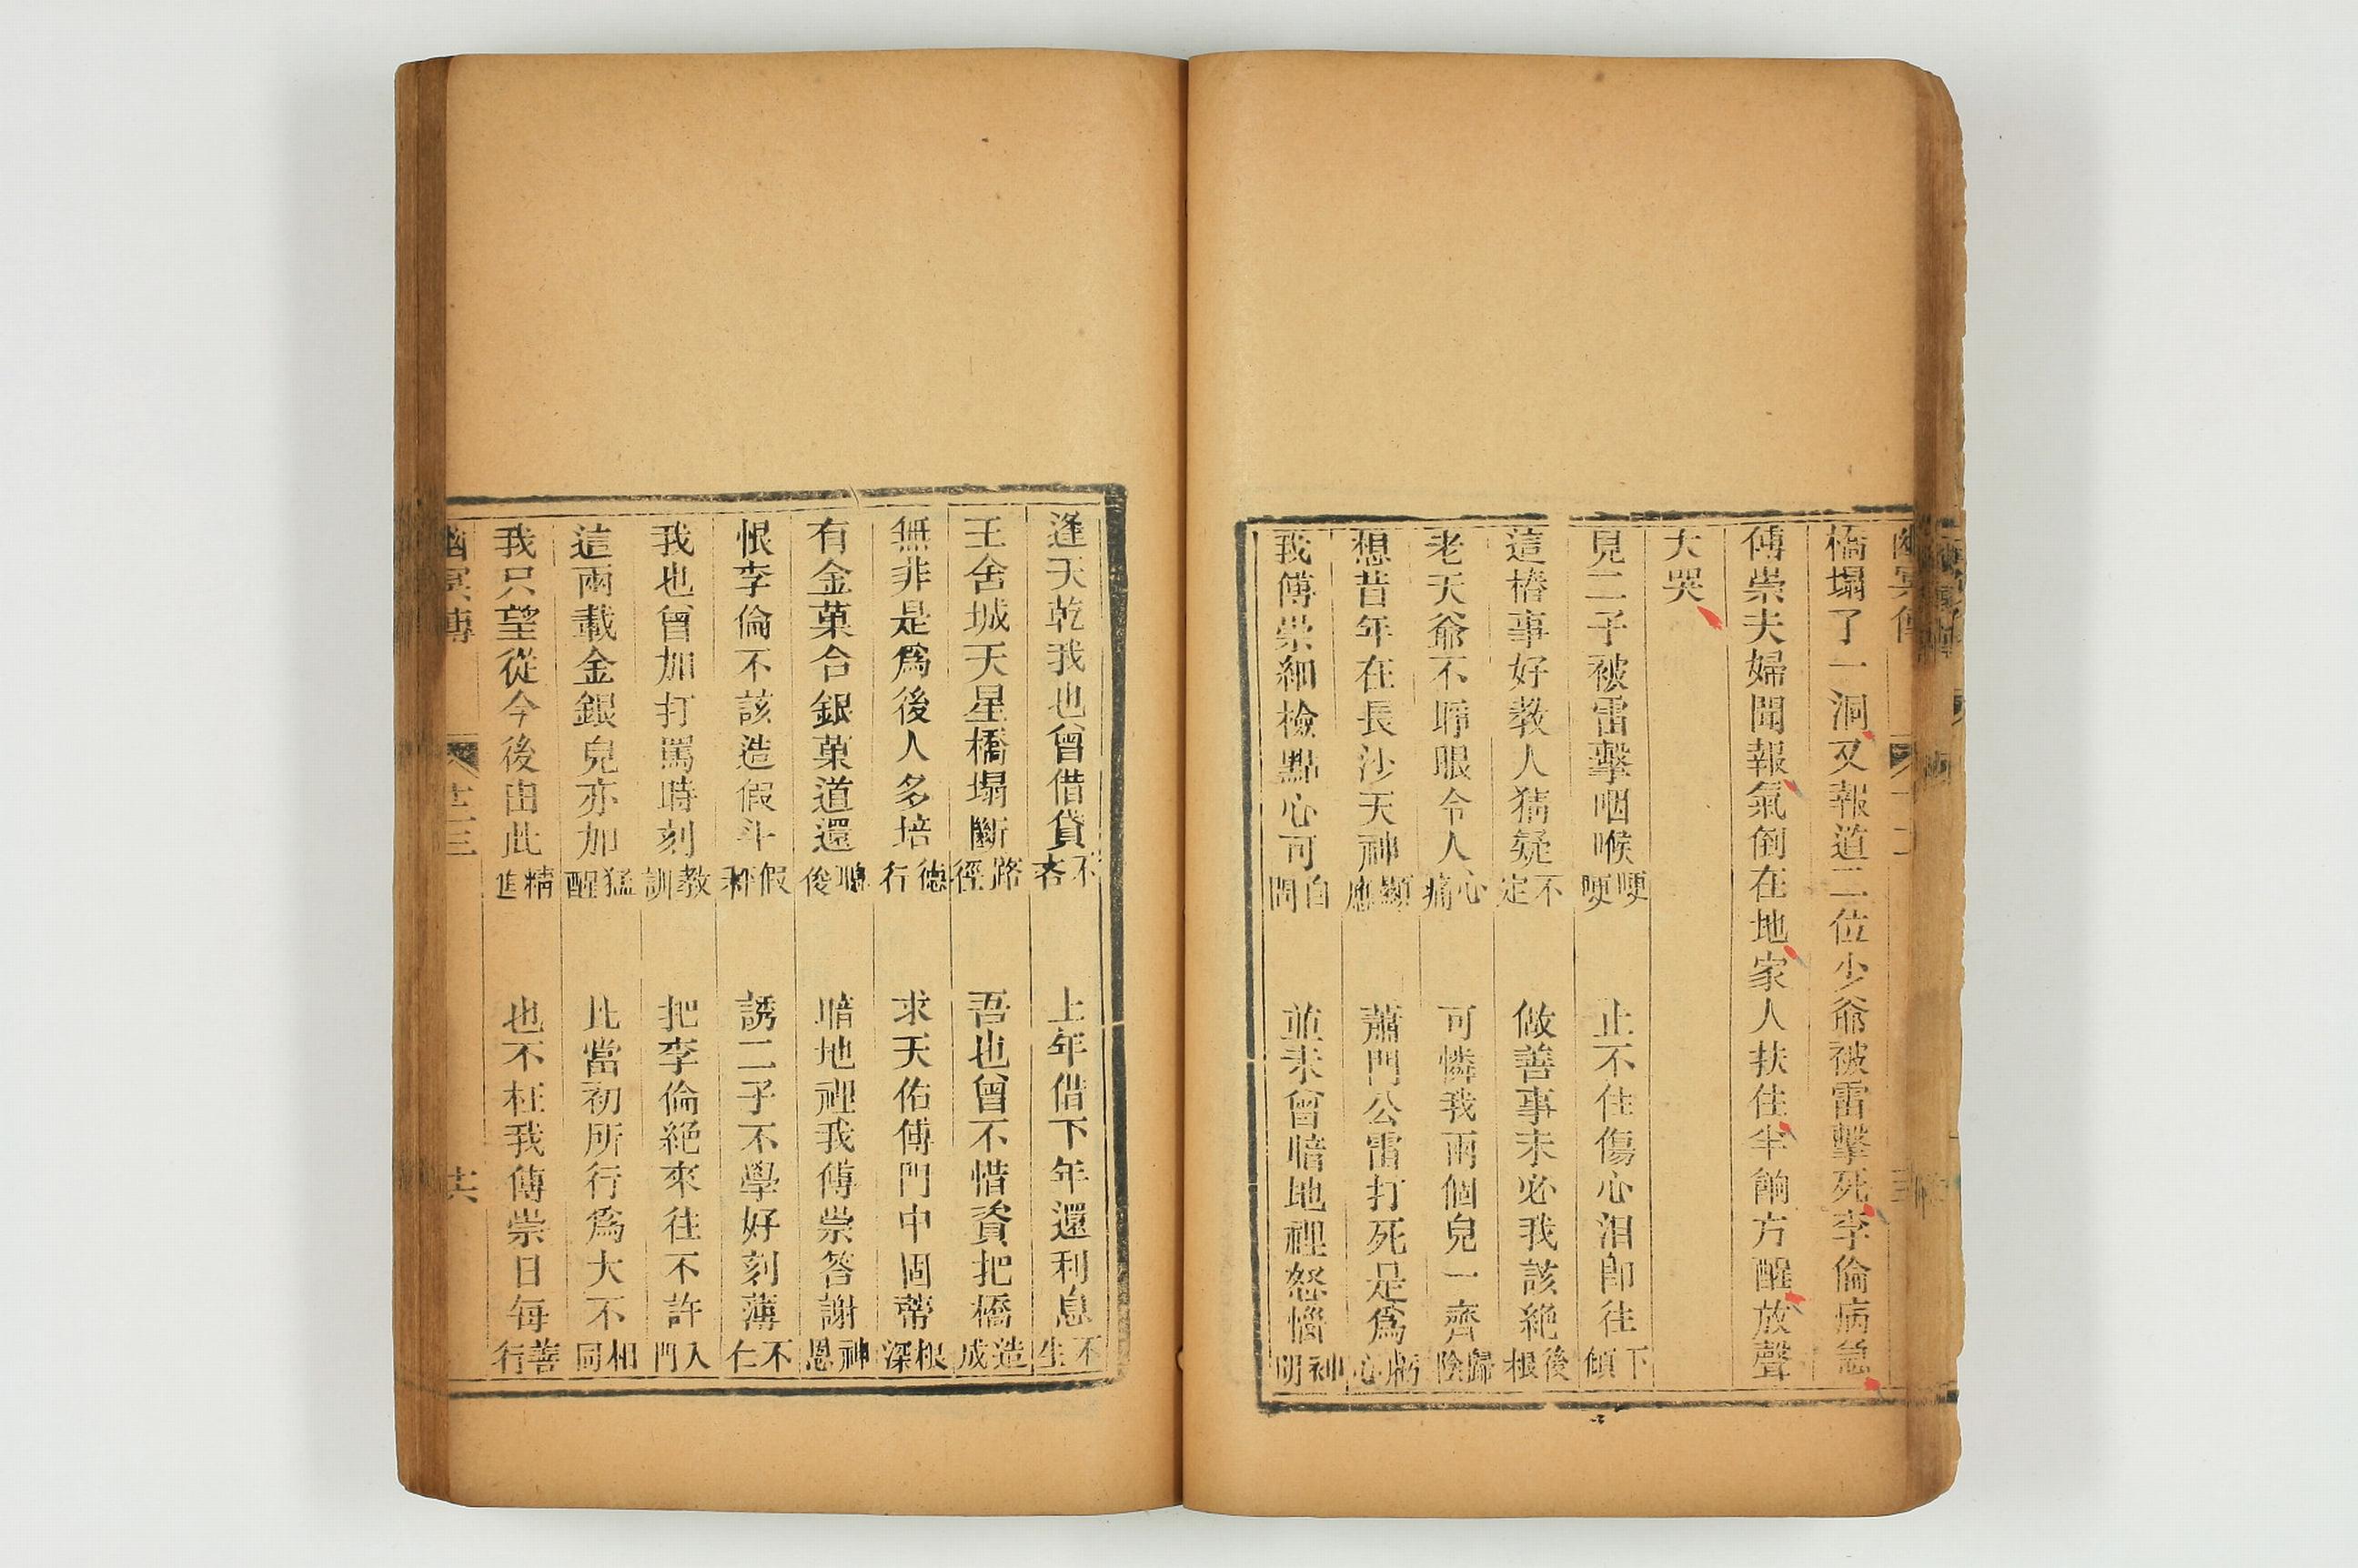 幽冥傳
橋塌了一洞又報道二位少爺被雷擊死李倫病急
傅崇夫婦聞報氣倒在地家人扶住半餉方醒放聲
大哭
見二子被雷擊咽喉哽哽　止不住傷心泪卽往下傾
這樁事好教人猜疑不定　做善事未必我該絕後根
老天爺不睜眼令人心痛　可憐我兩個兒一齊歸陰
想昔年在長沙天神顯應　蕭門公雷打死是爲虧心
我傅崇細檢點心可自問　並未曾暗地裡怒惱神明
逢天乾我也曾借貸不吝　上年借下年還利息不生
王舍城天星橋塌斷路徑　吾也曾不惜資把橋造成
無非是爲後人多培德行　求天佑傅門中固蒂根深
有金菓合銀菓道還聰俊　暗地裡我傅崇答謝神恩
恨李倫不該造假斗假秤　誘二子不學好刻薄不仁
我也曾加打罵時刻教訓　把李倫絕來往不許入門
這兩載金銀兒亦加猛醒　比當初所行爲大不相同
我只望從今後由此精進　也不枉我傅崇日每善行
幽冥傳